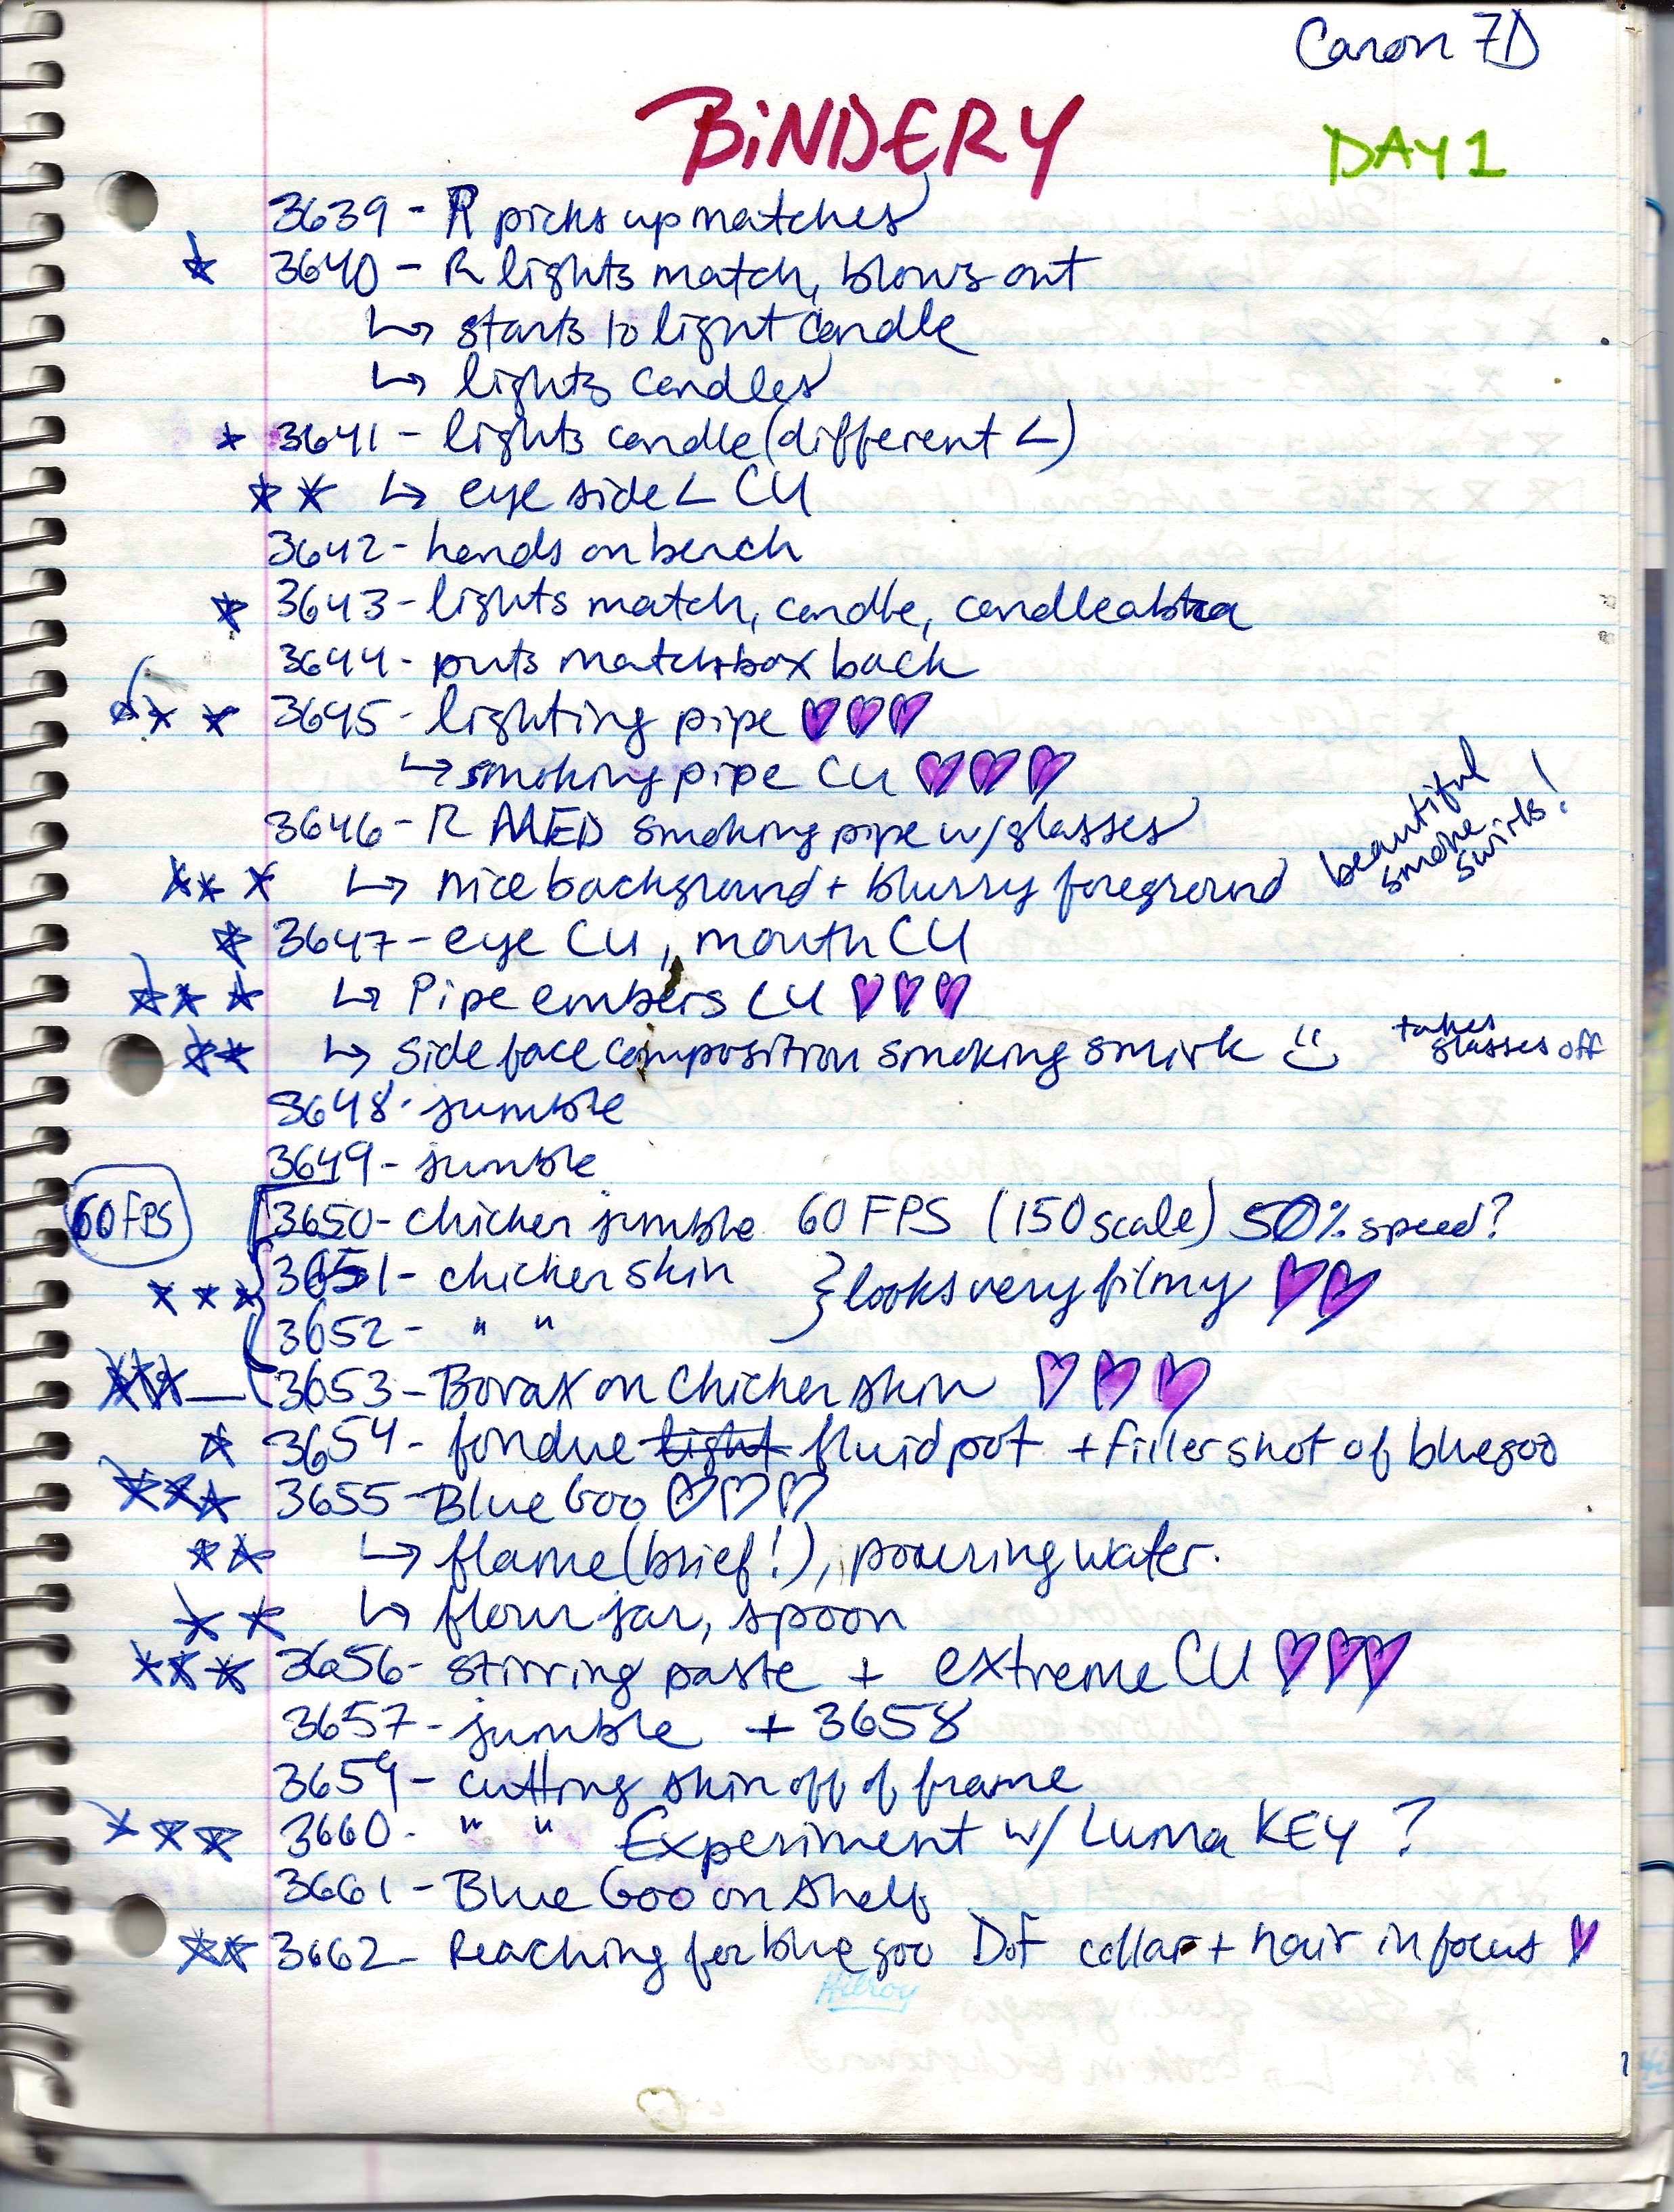 Canon 7D
BiNDERY
DAY 1
3639 - R picks up matches
★ 3640 - R lights match, blows out
↳ starts to light candle
↳ lights candles
★ 3641 - lights candle (different ∠)
★★ ↳ eye side ∠ CU
3642 - hands on bench
★ 3643 - lights match, candle, candleabra
3644 - puts matchbox back
★★★ 3645 - lighting pipe ♡♡♡
↳ smoking pipe CU ♡♡♡
3646 - R MED smoking pipe w/ glasses
★★★ ↳ nice background + blurry foreground
beautiful
smoke
swirls!
★ 3647 - eye CU, mouth CU
★★★ ↳ Pipe embers CU ♡♡♡
★★ ↳ side face composition smoking smirk ☺ takes
glasses off
3648 - jumble
3649 - jumble
60 FPS 3650 - chicken jumble 60 FPS (150 scale) 50% speed?
★★★ 3651 - chicken skin } looks very filmy ♡♡
3652 - " "
★★★ 3653 - Borax on Chicken skin ♡♡♡
★ 3654 - fondue light fluid pot + filler shot of blue goo
★★★ 3655 - Blue Goo ♡♡♡
★★ ↳ flame (brief!), pouring water.
★★ ↳ flour jar, spoon
★★★ 3656 - stirring paste + extreme CU ♡♡♡
3657 - jumble + 3658
3659 - cutting skin off of frame
★★★ 3660 - " " Experiment w/ Luma KEY ?
3661 - Blue Goo on shelf
★★ 3662 - Reaching for blue goo DoF collar + hair in focus ♡
Hilroy